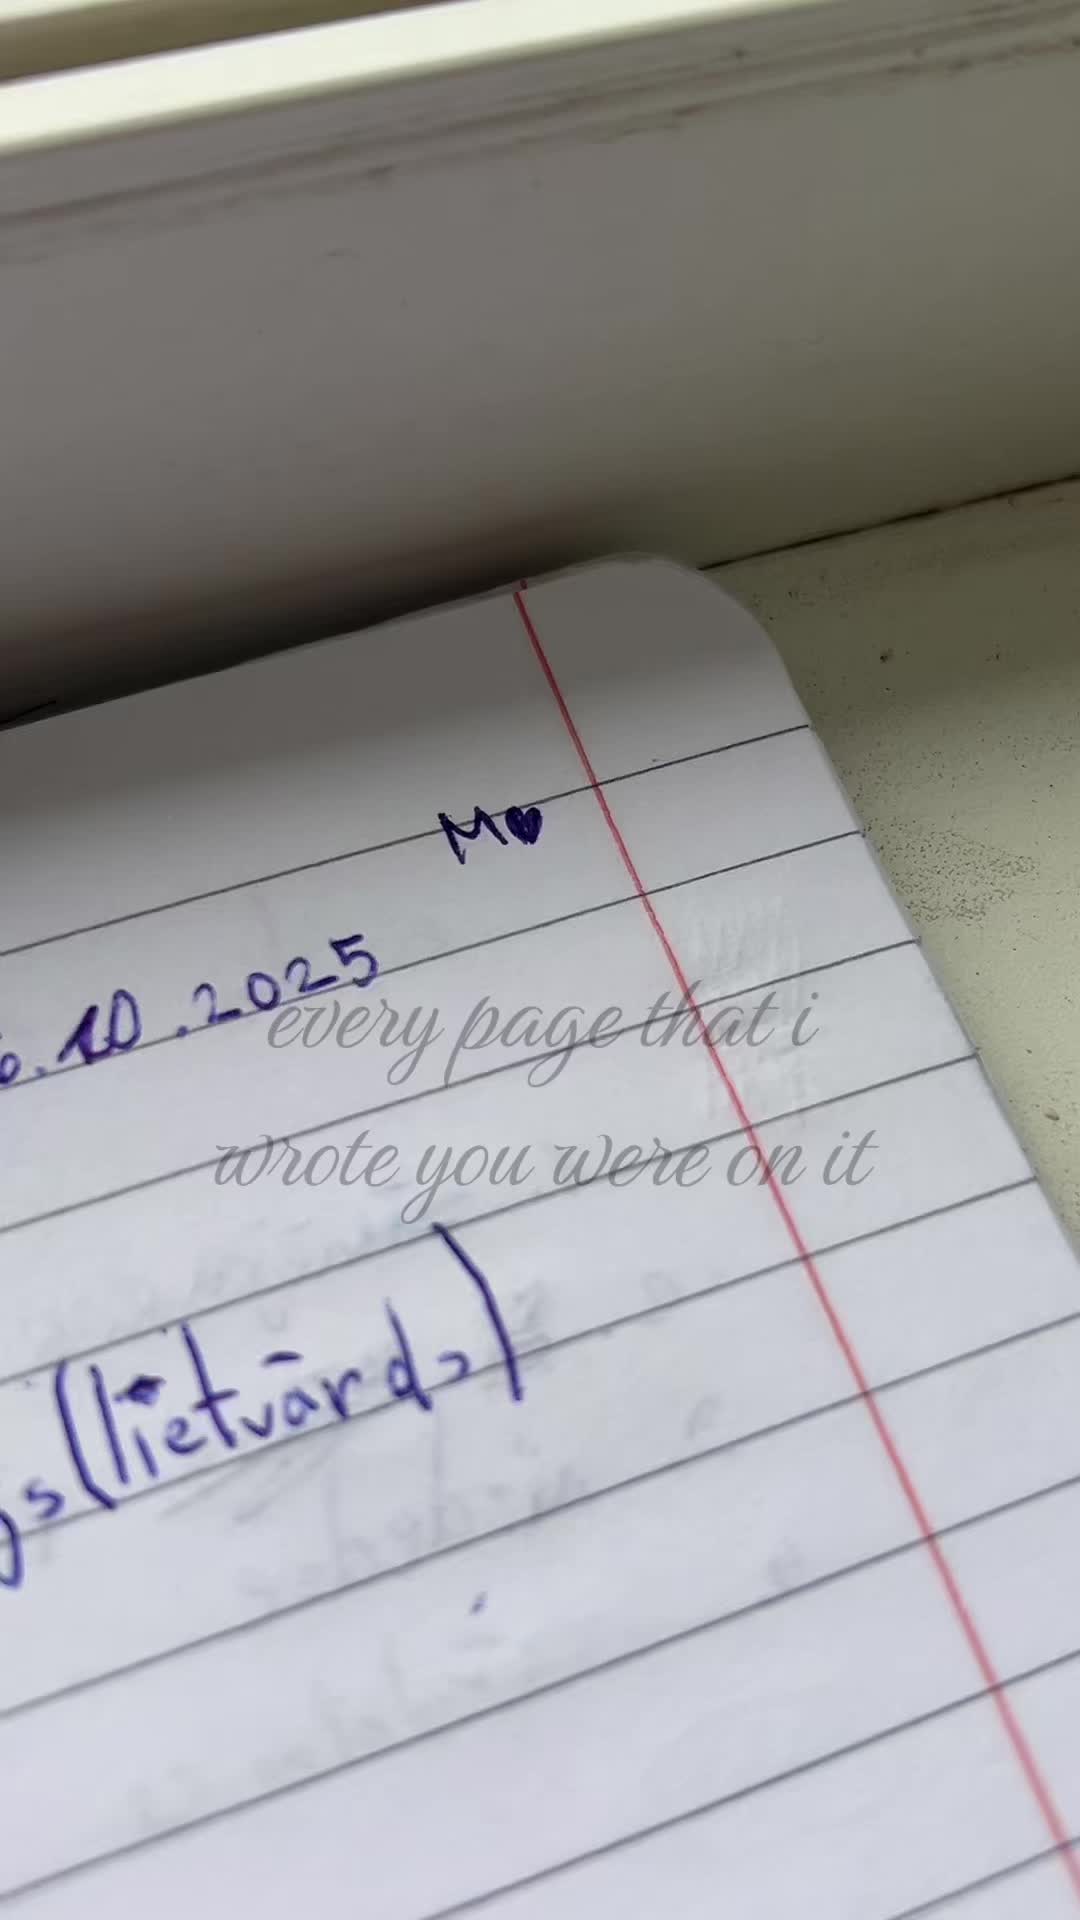 M♥
6.10.2025
every page that i
wrote you were on it
(lietvārds)